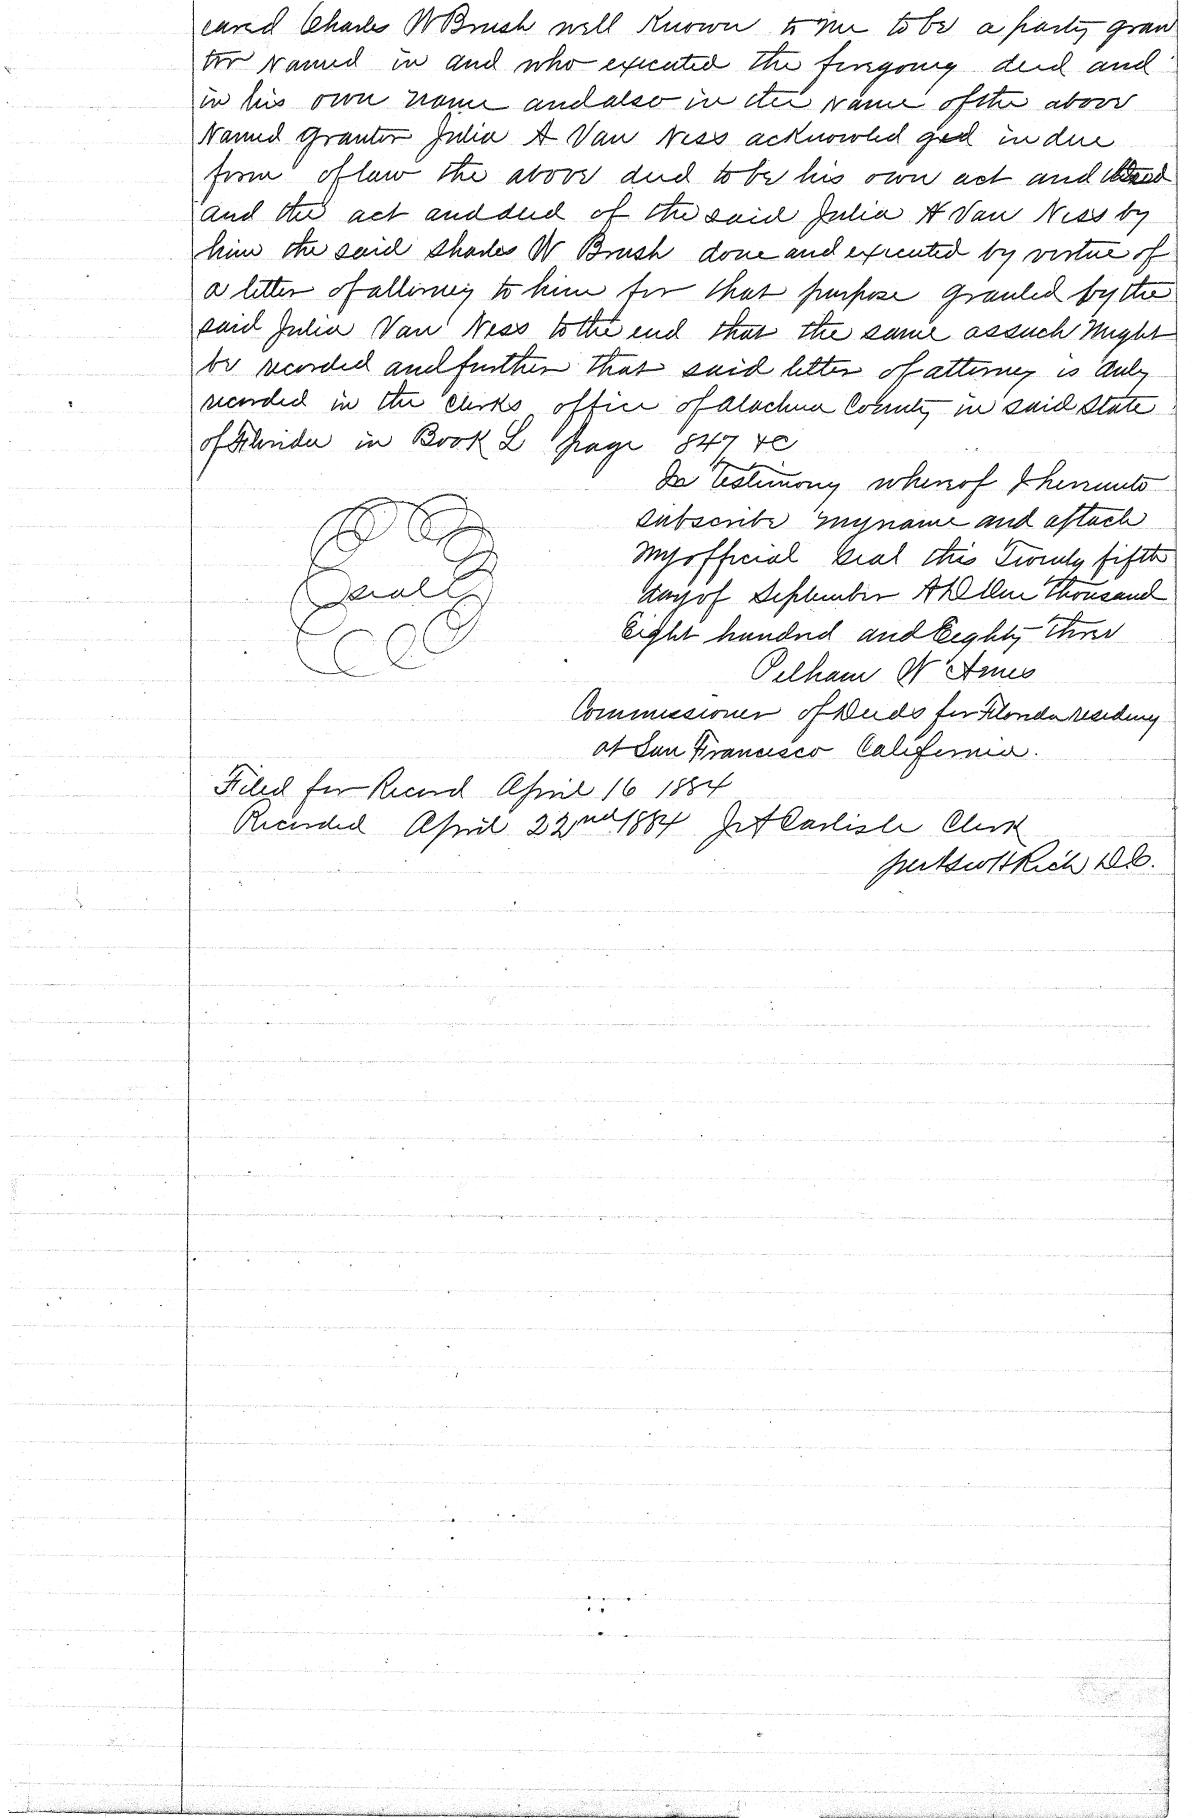 eared Charles W Brush well Known to me to be a party gran
tor Named in and who executed the foregoing deed and
in his own name and also in the Name of the above
Named grantor Julia A Van Ness acknowled ged in due
form of law the above deed to be his own act and deed
and the act and deed of the said Julia A Van Ness by
him the said Sharles W Brush done and executed by virtue of
a letter of attorney to him for that purpose granted by the
said Julia Van Ness to the end that the same as such Might
be recorded and further that said letter of attorney is duly
recorded in the Clerks office of Alachua County in said State
of Florida in Book L page 847 &C
In Testimony whereof I hereunto
subscribe my name and attach
My official seal this Twenty fifth
day of September AD One thousand
Eight hundred and Eighty Three
Seal
Pelham W Ames
Commissioner of Deeds for Florida residing
at San Francisco California.
Filed for Record April 16 1884
Recorded April 22nd 1884 J A Carlisle Clerk
per Geo H Rich D C.